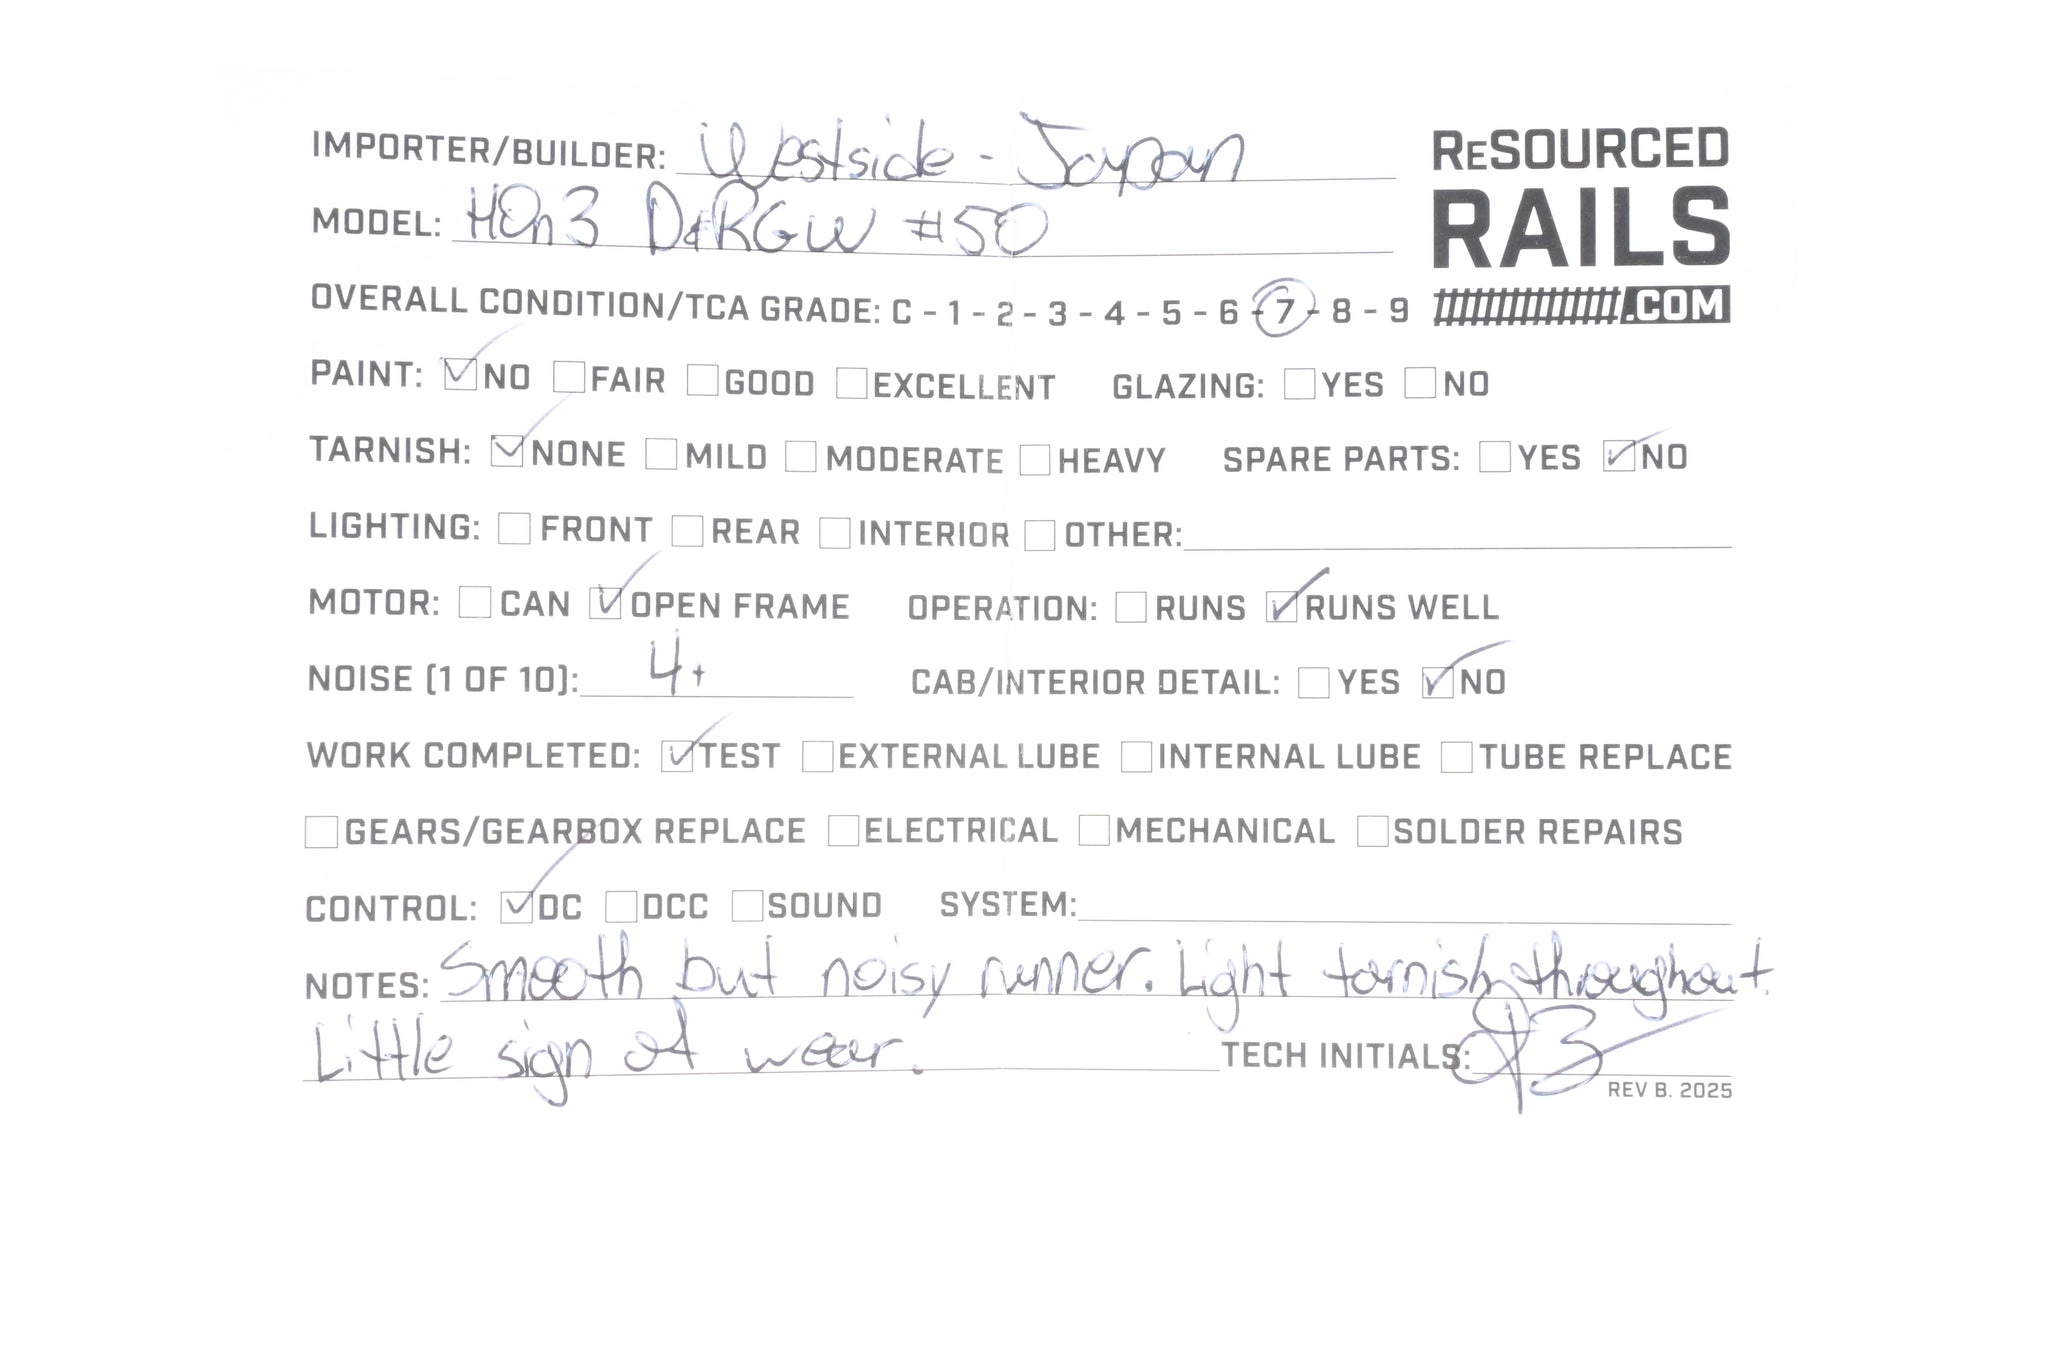 IMPORTER/BUILDER: Westside - Japan
RESOURCED
RAILS
.COM
MODEL: HOn3 D&RGW #50
OVERALL CONDITION/TCA GRADE: C - 1 - 2 - 3 - 4 - 5 - 6 - 7 - 8 - 9
PAINT: ☑NO ☐FAIR ☐GOOD ☐EXCELLENT GLAZING: ☐YES ☐NO
TARNISH: ☑NONE ☐MILD ☐MODERATE ☐HEAVY SPARE PARTS: ☐YES ☑NO
LIGHTING: ☐FRONT ☐REAR ☐INTERIOR ☐OTHER:
MOTOR: ☐CAN ☑OPEN FRAME OPERATION: ☐RUNS ☑RUNS WELL
NOISE (1 OF 10): 4+ CAB/INTERIOR DETAIL: ☐YES ☑NO
WORK COMPLETED: ☑TEST ☐EXTERNAL LUBE ☐INTERNAL LUBE ☐TUBE REPLACE
☐GEARS/GEARBOX REPLACE ☐ELECTRICAL ☐MECHANICAL ☐SOLDER REPAIRS
CONTROL: ☑DC ☐DCC ☐SOUND SYSTEM:
NOTES: Smooth but noisy runner. Light tarnish throughout.
Little sign of wear. TECH INITIALS:
REV B. 2025